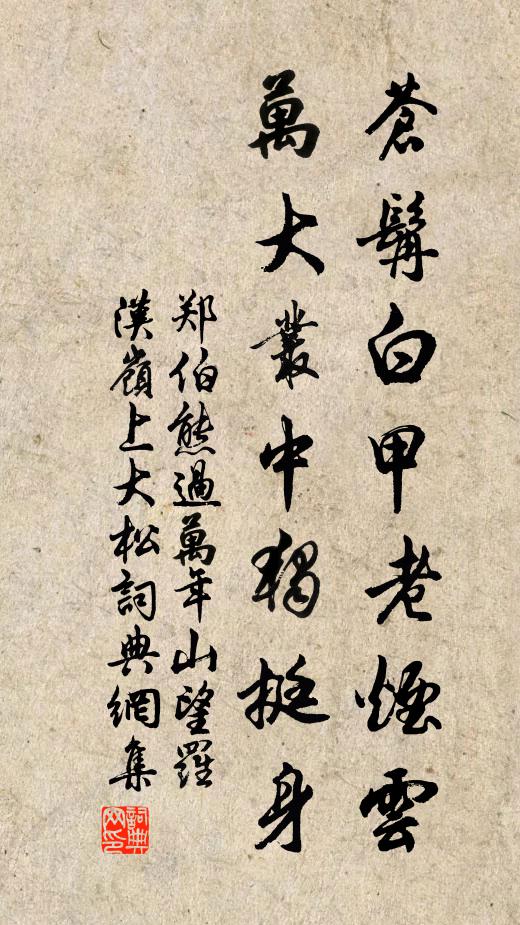 蒼髯白甲老煙雲
萬大叢中獨挺身
郑伯熊過萬年山望羅
漢嶺上大松詞典網集
詞典
网印